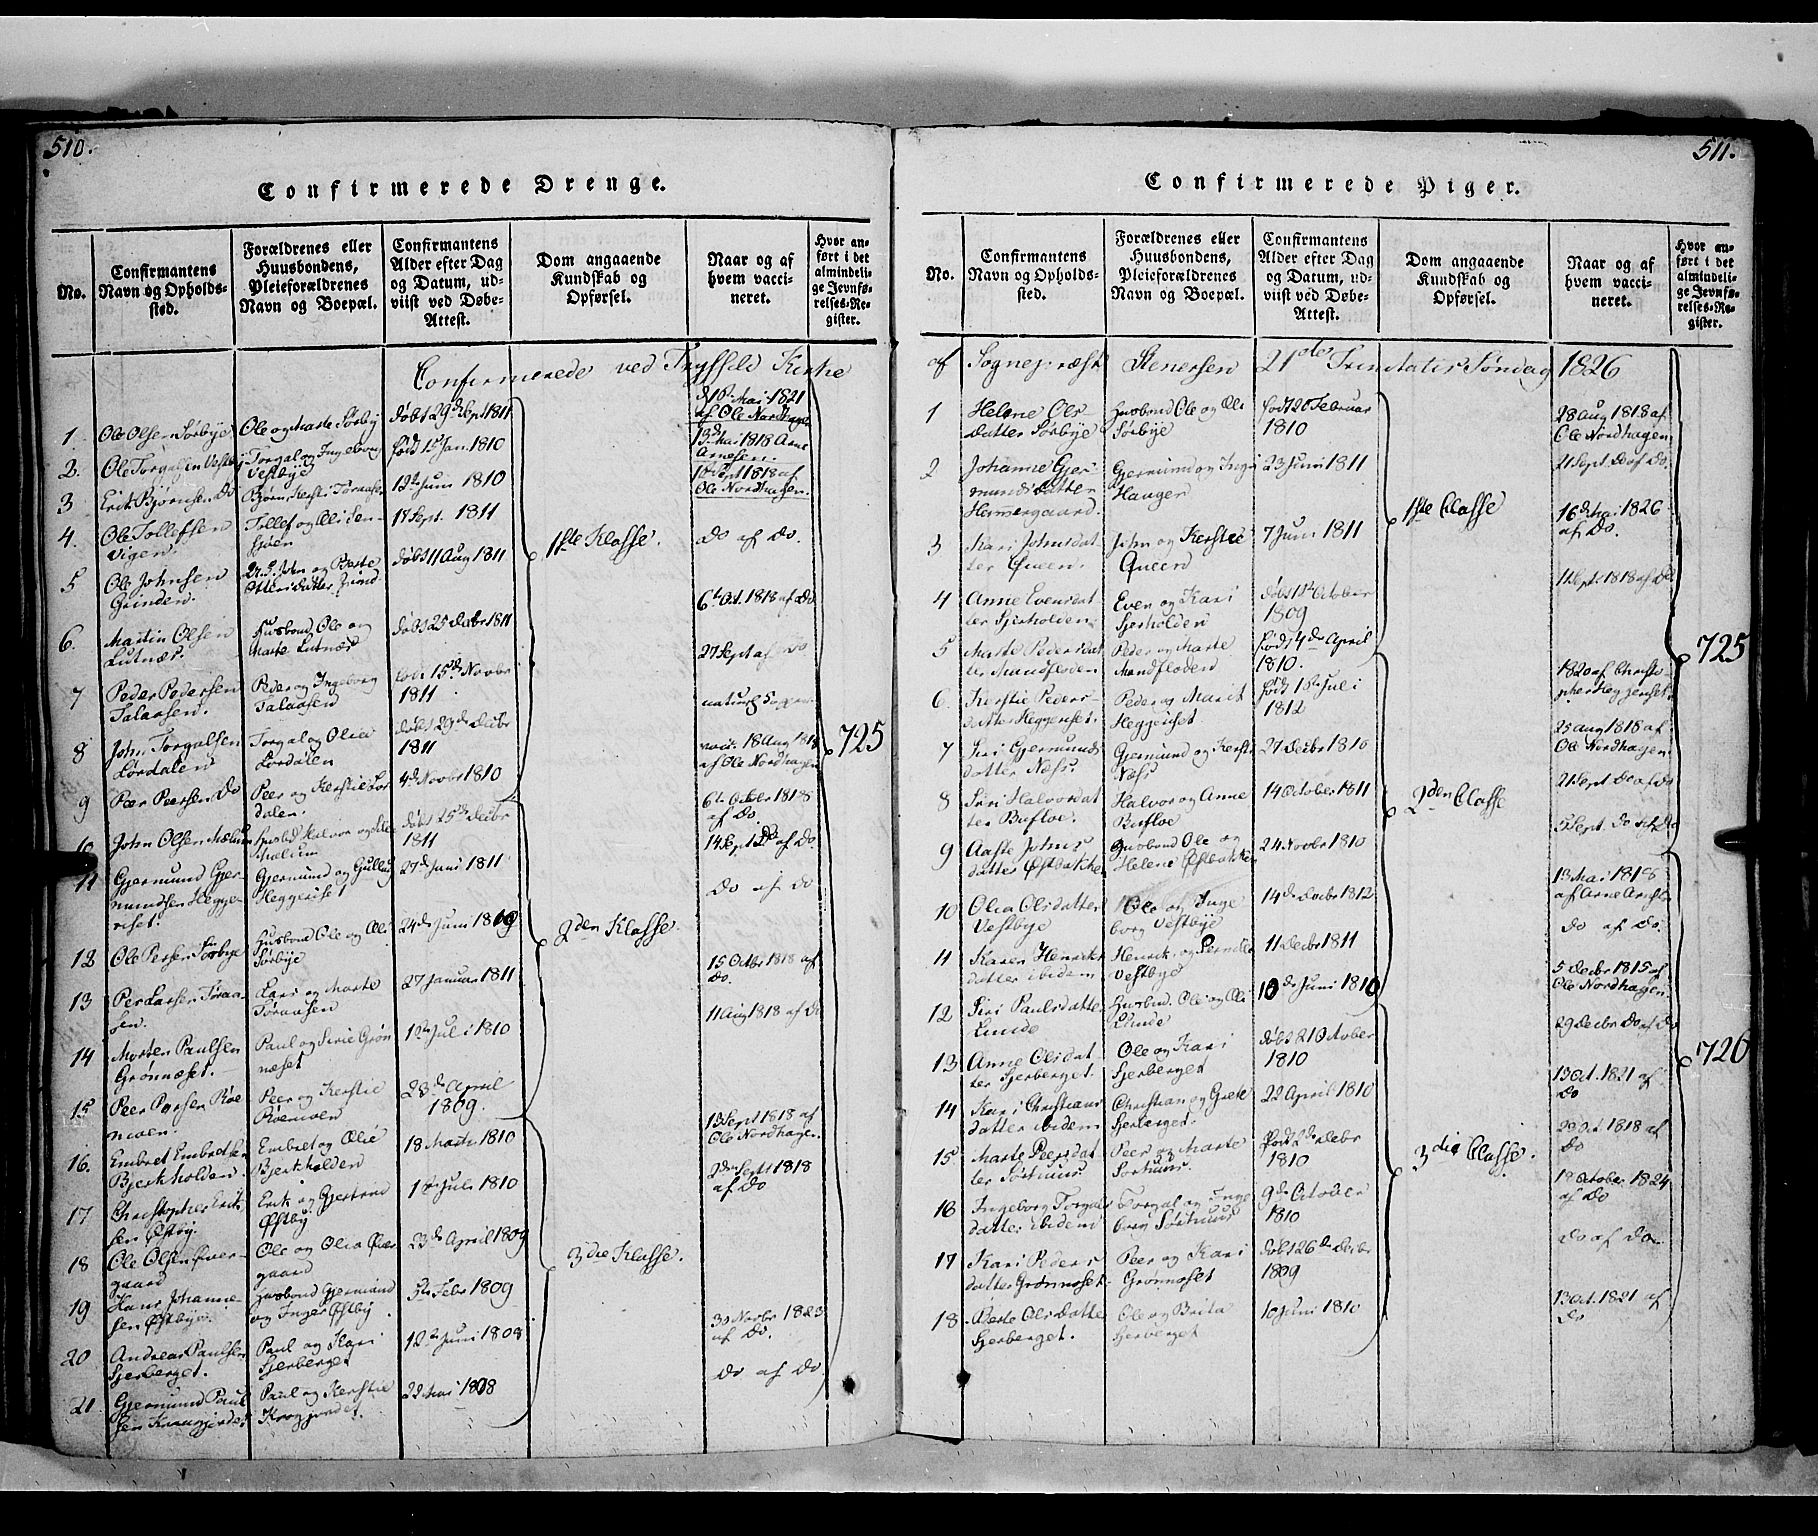 510.
Confirmerede Drenge.
No.
Confirmantens
Navn og Opholds-
sted.
Forældrenes eller
Huusbondens,
Pleieforældrenes
Navn og Boepæl.
Confirmantens
Alder efter Dag
og Datum, ud-
viist ved Døbe-
Attest.
Dom angaaende
Kundskab og
Opførsel.
Naar og af
hvem vacci-
neret.
Hvor an-
ført i det
almindeli-
ge Jevnfø-
relses-Re-
gister.
Confirmerede ved Tryssild Kirke
1. Ole Olsen Sørbye Ole og Marte Sørby døbt 29d Sept 1811
af Ole Nordhagen
2. Ole Torgalsen Vestby Torgal og Ingeborg Vestbye født 1st Jan. 1810 13d Mai 1818 Arne Arnesen.
3 Erik Bjørnsen Do Bjørn, Kersti Tøraasen 12te Juni 1810 10d Sept 1818 af Ole Nordhagen.
4. Ole Tollefsen Vigen. Tollef og Oli 17 Sept. 1811 1ste Klasse. Do af Do.
5 Ole Johnsen Grinden. John og Berte Ottersdatter døbt 11 Aug 1811
6. Martin Olsen Lutnæs. Husbond Ole og Marte Lutnæs døbt 25 Decbr 1811 6te Oct. 1818 af Do
7 Peder Pedersen Talaasen. Peder og Ingeborg Talaasen 15de Novbr 1811 27 Sept af Do
8 John Torgalsen Lørdalen Torgal og Olia Lørdalen døbt 29de Decbr 1811
9 Peer Peersen Do Peer og Kerstie Lørdalen. 4de Novbr 1810 18 Aug 1814 af Ole Nordhagen
10 John Olsen Mælum døbt 25de Decbr 1811 6te Octobr 1818 af Do.
11 Gjermund Gjermundsen Heggeriset. Gjermund og Gullug Heggeriset 27de Juni 1811 14 Sept Do af Do.
12 Ole Persen Sørbye Husbond Ole og Oli Sørbye 24de Juni 1809 2den Klasse. Do af Do
13 Per Larsen Tøraasen. Lars og Marte Tøraasen 27 Januar 1811 15 Octbr 1818 af Do.
14 Morten Paulsen Grønnæset. Paul og Sirie Grønnæset 12te Juli 1810 11 Aug 1818 af Do
15 Peer Persen Røenmoen. Peer og Kerstie Røenmoen 23de April 1809.
16. Embret Embretsen Bjerkholden. Embret og Olie Bjerkholden 18 Marts 1810 13 Sept 1818 af Ole Nordhagen
17 Christopher Eriksen Østby. Erik og Gjertrud Østby 1ste Juli 1810 2den Sept 1818 af Do
18 Ole Olsen Øvergaard Ole og Olia Øvergaard 23de April 1809 3die Klasse.
19 Hans Johannesen Østbye. Husbond Gjermund og Inger Østby 5te Febr 1809
20 Andreas Paulsen Sjerberget. Paul og Kari Sjerberget 12te Juni 1808 30 Novbr 1823 af Do.
21 Gjermund Paulsen Paul og Kerstie 22 Mai 1808 Do af Do
725
511.
Confirmerede Piger.
No.
Confirmantens
Navn og Opholds-
sted.
Forældrenes eller
Huusbondens,
Pleieforældrenes
Navn og Boepæl.
Confirmantens
Alder efter Dag
og Datum, ud-
viist ved Døbe-
Attest.
Dom angaaende
Kundskab og
Opførsel.
Naar og af
hvem vacci-
neret.
Hvor an-
ført i det
almindeli-
ge Jevnfø-
relses-Re-
gister.
af Sognepræst Stenersen 21de Trinitatis Søndag 1826
1 Helene Olsdatter Sørbye Husbond Ole og Oli Sørbye født 20 Februar 1810 28 Aug 1818 af Ole Nordhagen
2 Johanne Gjermundsdatter Gjermund og Inger Hanger 23 Juni 1811 21 Sept. Do af Do.
3 Kari Johnsdatter Qveen. John og Kerstie Qveen 7 Juni 1811 1ste Classe 16de Mai 1826 af Do.
4 Anne Evensdatter Sjerholden. Even og Kari Sjerholden døbt 11te October 1809 11 Sept. 1818 af Do
5 Marte Pedersdatter Mandfloden Peder og Marte Mandfloden født 4de April 1810.
6. Kerstie Pedersdatter Heggeriset. Peder og Marit Heggeriset født 15te Juli 1812 1820 af Christopher Heggeriset
7 Siri Gjermundsdatter Næss. Gjermund og Kersti Næss 27 Decbr 1810 25 Aug 1818 af Ole Nordhagen
8 Siri Halvorsdatter Bufloe. Halvor og Anne Bufloe 14 October 1811 2den Classe 21 Sept Do af Do
9 Aaste Johnsdatter Østbakken Husbond Ole og Helene Østbakken 24 Novbr 1810 5 Sept. Do af Do
10 Olia Olsdatter Vestbye Ole og Ingeborg Vestbye 14de Decbr 1812 13 Mai 1818 af Arne Arnesen
11 Karen Henriksdatter ibidem Henrik og Pernille Vestbye 11 Decbr 1811 Do af Do.
12 Siri Paulsdatter Lunde Husbond Ole og Oli Lunde 10de Juni 1810 5 Decbr 1815 af Ole Nordhagen.
13 Anne Olsdatter Sjerberget. Ole og Kari Sjerberget døbt 21 October 1810 29 Decbr Do af Do
14 Kari Christiansdatter ibidem Christian og Grete Sjerberget. 22 April 1810 13 Oct. 1821 af Do
15. Marte Peersdatter Sørhuus Peer og Marte Sørhuus. født 2de Decbr 1810 3die Classe. 29 Oct. 1818 af Do
16 Ingeborg Torgalsdatter ibidem Torgal og Ingeborg Sørhuus 9de October 1810 19 October 1824 af Do
17 Kari Pedersdatter Grønnoset. Peer og Kari Grønnoset døbt 26de Decbr 1809 Do af Do.
18 Berte Olsdatter Sjerberget. Ole og Brita Sjerberget 10 Juni 1810 13 Oct. 1821 af Do
725
726